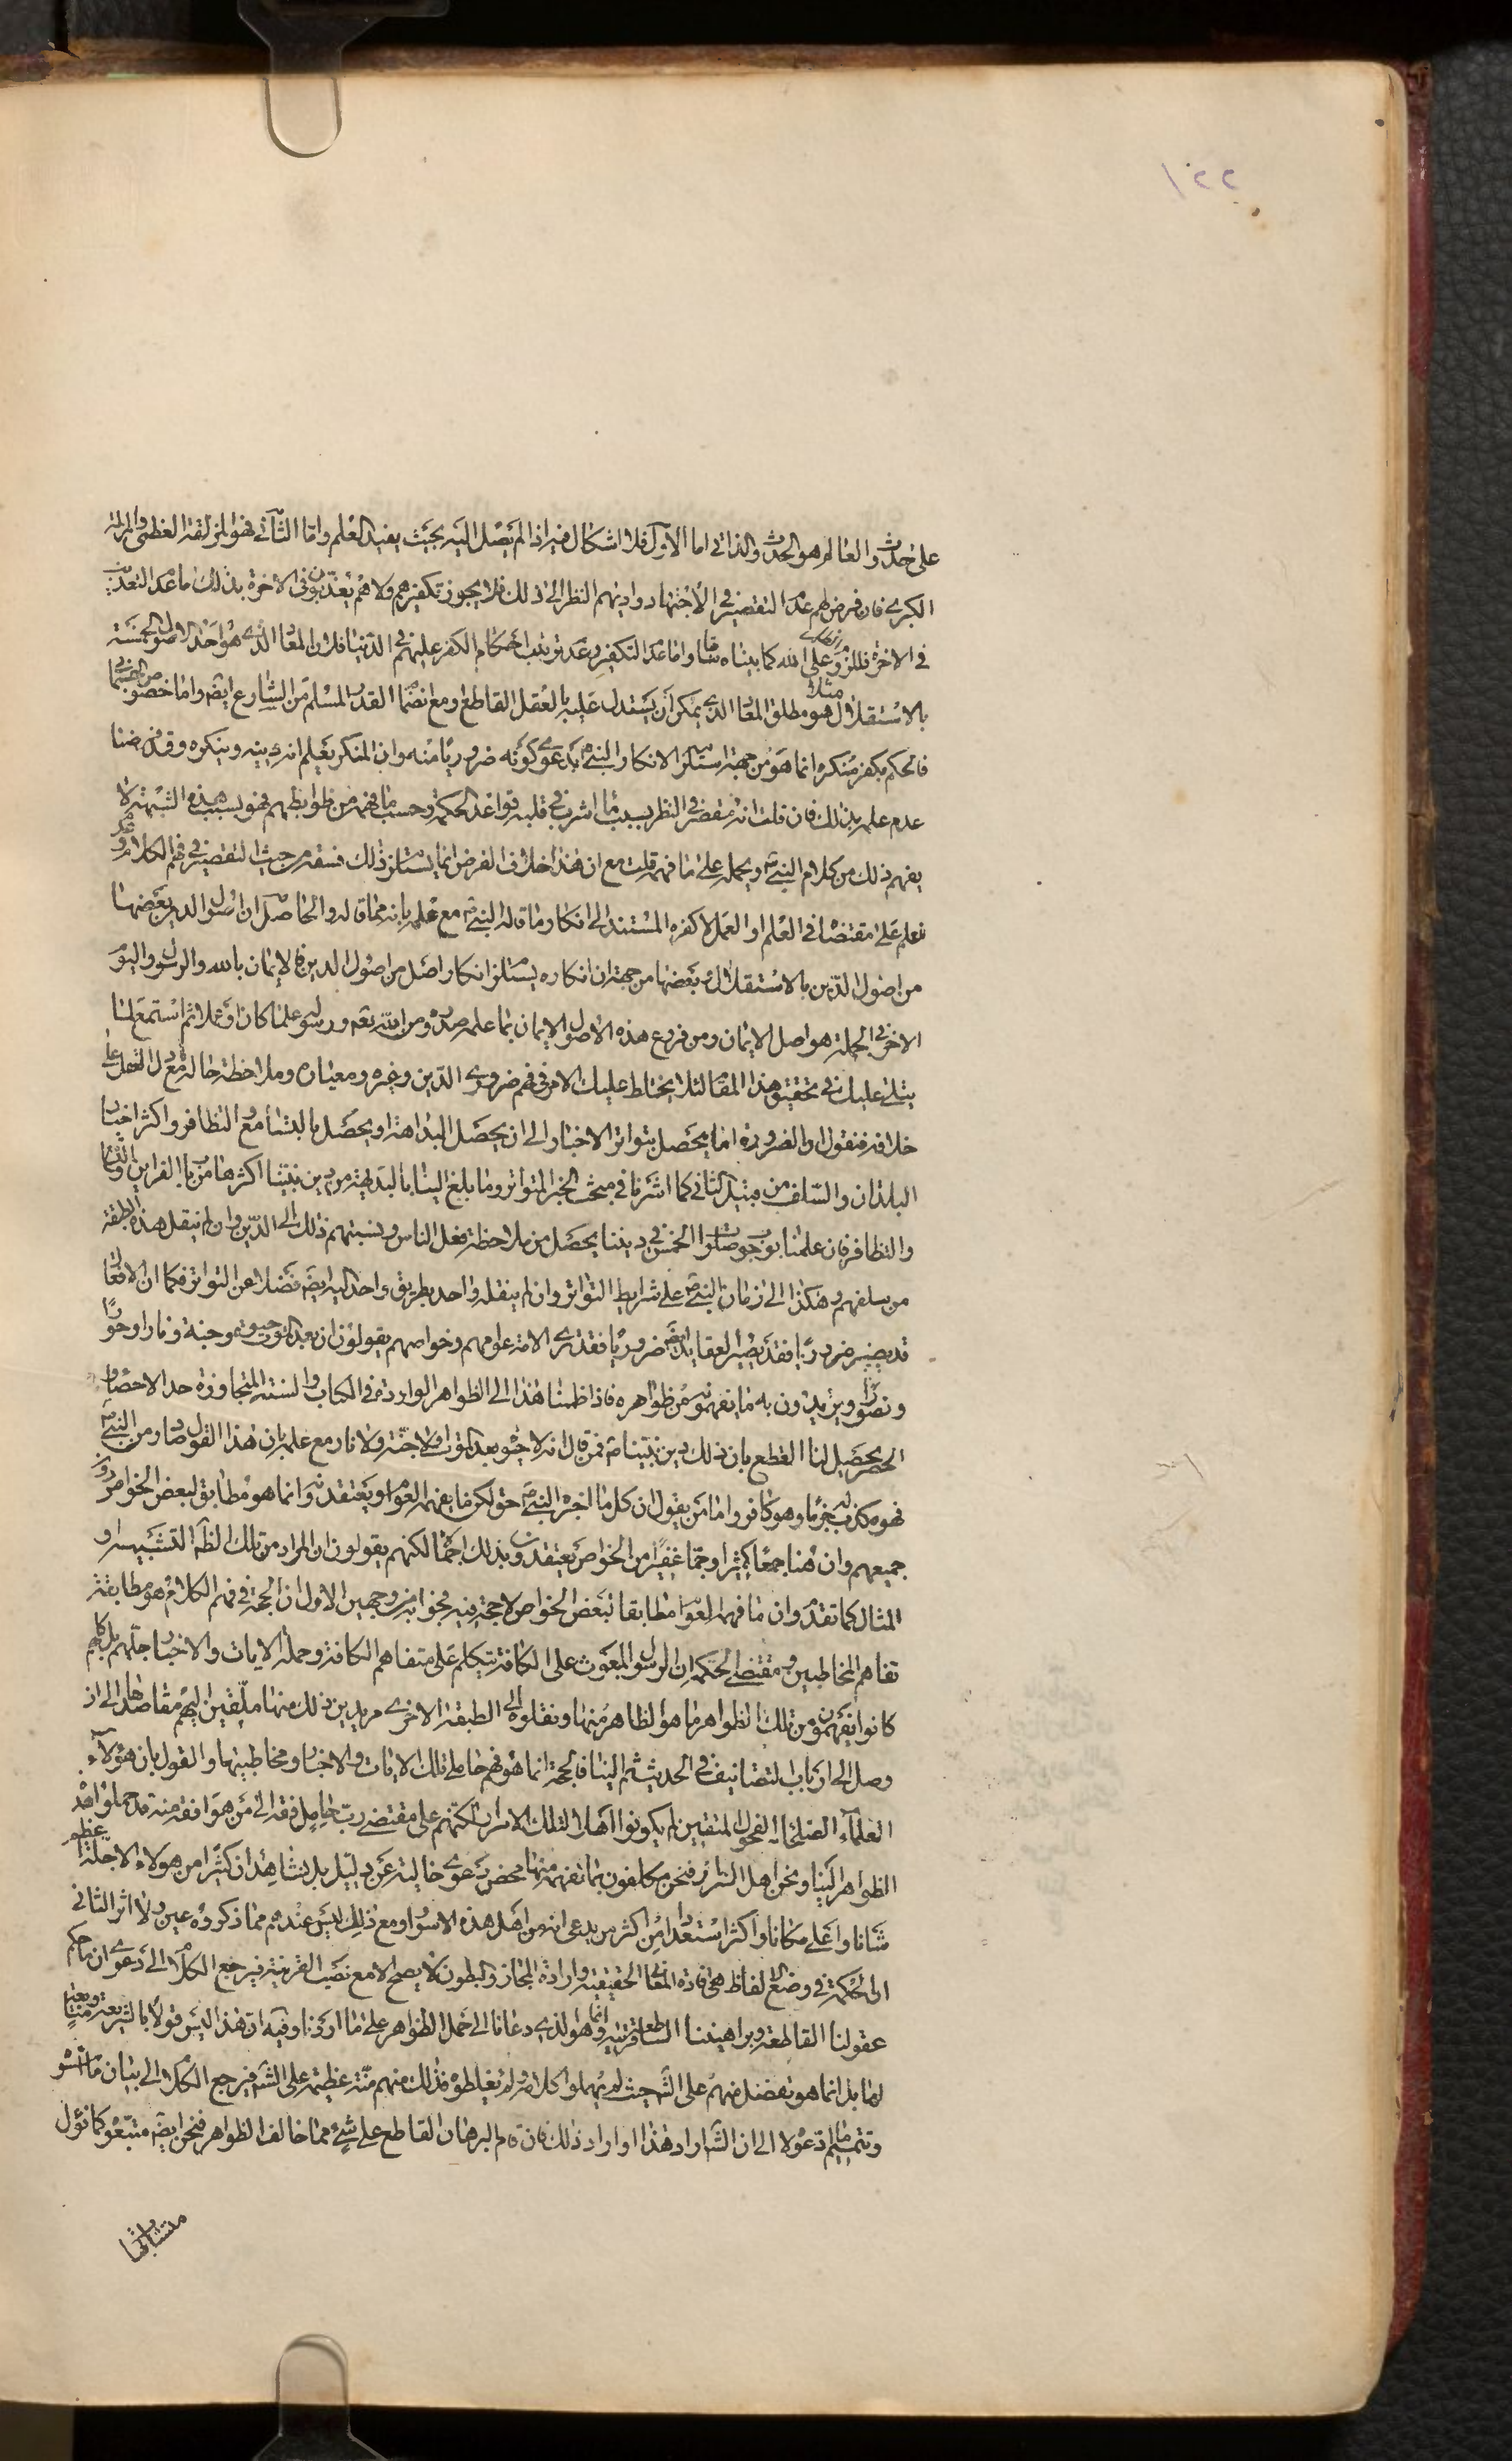 ١٢٢
على حدوث العالم هو الحدوث الذاتي اما الأول فلا اشكال فيه اذا لم يصل اليه بحيث يفيد العلم واما الثاني فهو المزلقة العظمى والمزلة
الكبرى فان فرض لهم عدم التقصير في الاجتهاد واديهم النظر الى ذلك فلا يجوز تكفيرهم ولا هم يعذبون في الاخرة بذلك اما عدم التعذيب
في الاخرة فللزوم على الله كما بيناه سابقا واما عدم التكفير وعدم ترتب احكام الكفر عليهم في الدنيا فلان المعاد الذي هو احد الاصول الخمسة
بالاستقلال هو مطلق المعاد الذي يمكن ان يستدل عليه بالعقل القاطع او مع انضمام القدر المسلم من الشارع ايضا واما خصوص الجسماني
فالحكم بكفر منكره انما هو من جهة استلزامه لانكار النبي ص بدعوى كونه ضروريا منه وان المنكر يعلم انه دينه وينكره وقد فرضنا
عدم علمه بذلك فان قلت انه مقصر في النظر بسبب ما اشرب في قلبه قواعد الحكمة وحسب ما فهمه من ظواهرهم فهو بسبب هذه الشبهة لا
يفهم ذلك من كلام النبي ص ويحمله على ما فهمه قلت مع ان هذا خلاف الفرض انما يستلزم ذلك فسقه من حيث التقصير في فهم الكلام وعدم
فعلم على مقتضاه في العلم او العمل لا كفره المستند الى انكار ما قاله النبي ص مع علمه بانه مما قاله والحاصل ان اصول الدين بعضها
من اصول الدين بالاستقلال وبعضها من جهة ان انكاره يستلزم انكار اصل من اصول الدين فالايمان بالله والرسول واليوم
الاخر في الجملة هو اصل الايمان ومن فروع هذه الاصول الايمان بما علم صدوره من الله تعه ورسوله علما كان او عملا ثم استمع لما
يتلى عليك في تحقيق هذا المقام لئلا يختلط عليك الامر في فهم ضروري الدين وغيره ومعياره وملاحظة حاله مع دل العقل على
خلافه فنقول والضرورة انما يحصل بتواتر الاخبار الى ان يحصل البداهة او يحصل بالتسامع والتظافر واكثر اخبار
البلدان والسلف من قبيل الثاني كما اشرنا في مبحث الخبر المتواتر وما بلغ الينا بالبديهة من دين نبينا اكثرها من باب القراين والتسامع
والتظافر فان علمنا بوجوب صلوات الخمس في ديننا يحصل من ملاحظة فعل الناس ونسبتهم ذلك الى الدين وان لم ينقل هذه الطبقة
من سلفهم وهكذا الى زمان النبي ص على شرايط التواتر وان لم ينقله واحد بطريق واحد اليه ايضه فضلا عن التواتر فكما ان الافعال
قد يصير ضروريا فقد يصير العقايد ايضه ضروريا فقد نرى الامة عوامهم وخواصهم يقولون ان بعد الموت حيوة وجنة ونارا وحورا
وقصورا ويريدون به ما يفهمونه من ظواهره فاذا ضممنا هذا الى الظواهر الواردة في الكتاب والسنة المتجاوزة حد الاحصاء
الحصر يحصل لنا القطع بان ذلك دين نبينا ص فمن قال انه لا حيوة بعد الموت ولا جنة ولا نار مع علمه بان هذا القول صادر من النبي ص
فهو مكذب له جزما وهو كافر واما من يقول ان كل ما اخبره النبي ص حق لكن ما يفهمه العوام ويعتقدونه انما هو مطابق لبعض الخواص دون
جميعهم وان هنا جمعا كثيرا وجما غفيرا من الخواص يعتقدون بذلك اجمالا لكنهم يقولون ان المراد من تلك الظواهر التشبيه و
المثال كما تقدم وان ما فهمه العوام مطابقا لبعض الخواص لا حجة فيه فجوابه من وجهين الاول ان الحجة في فهم الكلام هو مطابقة
تفاهم المخاطبين ومقتضى الحكمة ان الرسول المبعوث على الكافة يتكلم على متفاهم الكافة وحملة الايات والاخبار جلهم بل كلهم
كانوا يفهمون من تلك الظواهر ما هو الظاهر منها ونقلوه الى الطبقة الاخرى مريدين ذلك منها ملقين اليهم مقاصدها الى ان
وصل الى ارباب التصانيف في الحديث ثم الينا فالحجة انما هو فهم حاملي تلك الايات والاخبار ومخاطبيها والقول بان هؤلاء
العلماء الصلحاء الفحول المتقين لم يكونوا اهلا لتلك الاسرار لكنهم على مقتضى رب حامل فقه الى من هو افقه منه قد حملوا هذه
الظواهر الينا ونحن اهل السرائر فنحن مكلفون بما نفهمه منها محض دعوى خالية عن دليل بل نشاهد ان كثيرا من هولاء الاجلة اعظم
شانا واعلى مكانا واكثر استعدادا من اكثر من يدعى انه من اهل هذه الاسرار ومع ذلك ليس عندهم مما ذكروه عين ولا اثر الثاني
ان الحكمة في وضع الالفاظ هي افادة المعاني الحقيقية وارادة المجاز والبطون لا يصح الا مع نصب القرينة فيرجع الكلام الى دعوى ان ما حكم
عقولنا القاطعة وبراهيننا الساطعة قرينة وانما هو الذي دعانا الى حمل الظواهر على ما اولنا وفيه ان هذا ليس قولا بالشريعة ومتابعة
لها بل انما هو تفضل منهم على الشرع حيث لم يهملوا كلامه ولم يغلطوه فذلك منهم منة عظيمة على الشرع فيرجع الكلام الى بيان ما اسسوه
وتتميم ما ادعوه لا الى ان الشارع اراد هذا او اراد ذلك فان تم البرهان القاطع على شيء مما خالف الظواهر فنحن ايضه متبعوه كما نؤل
متشابهات